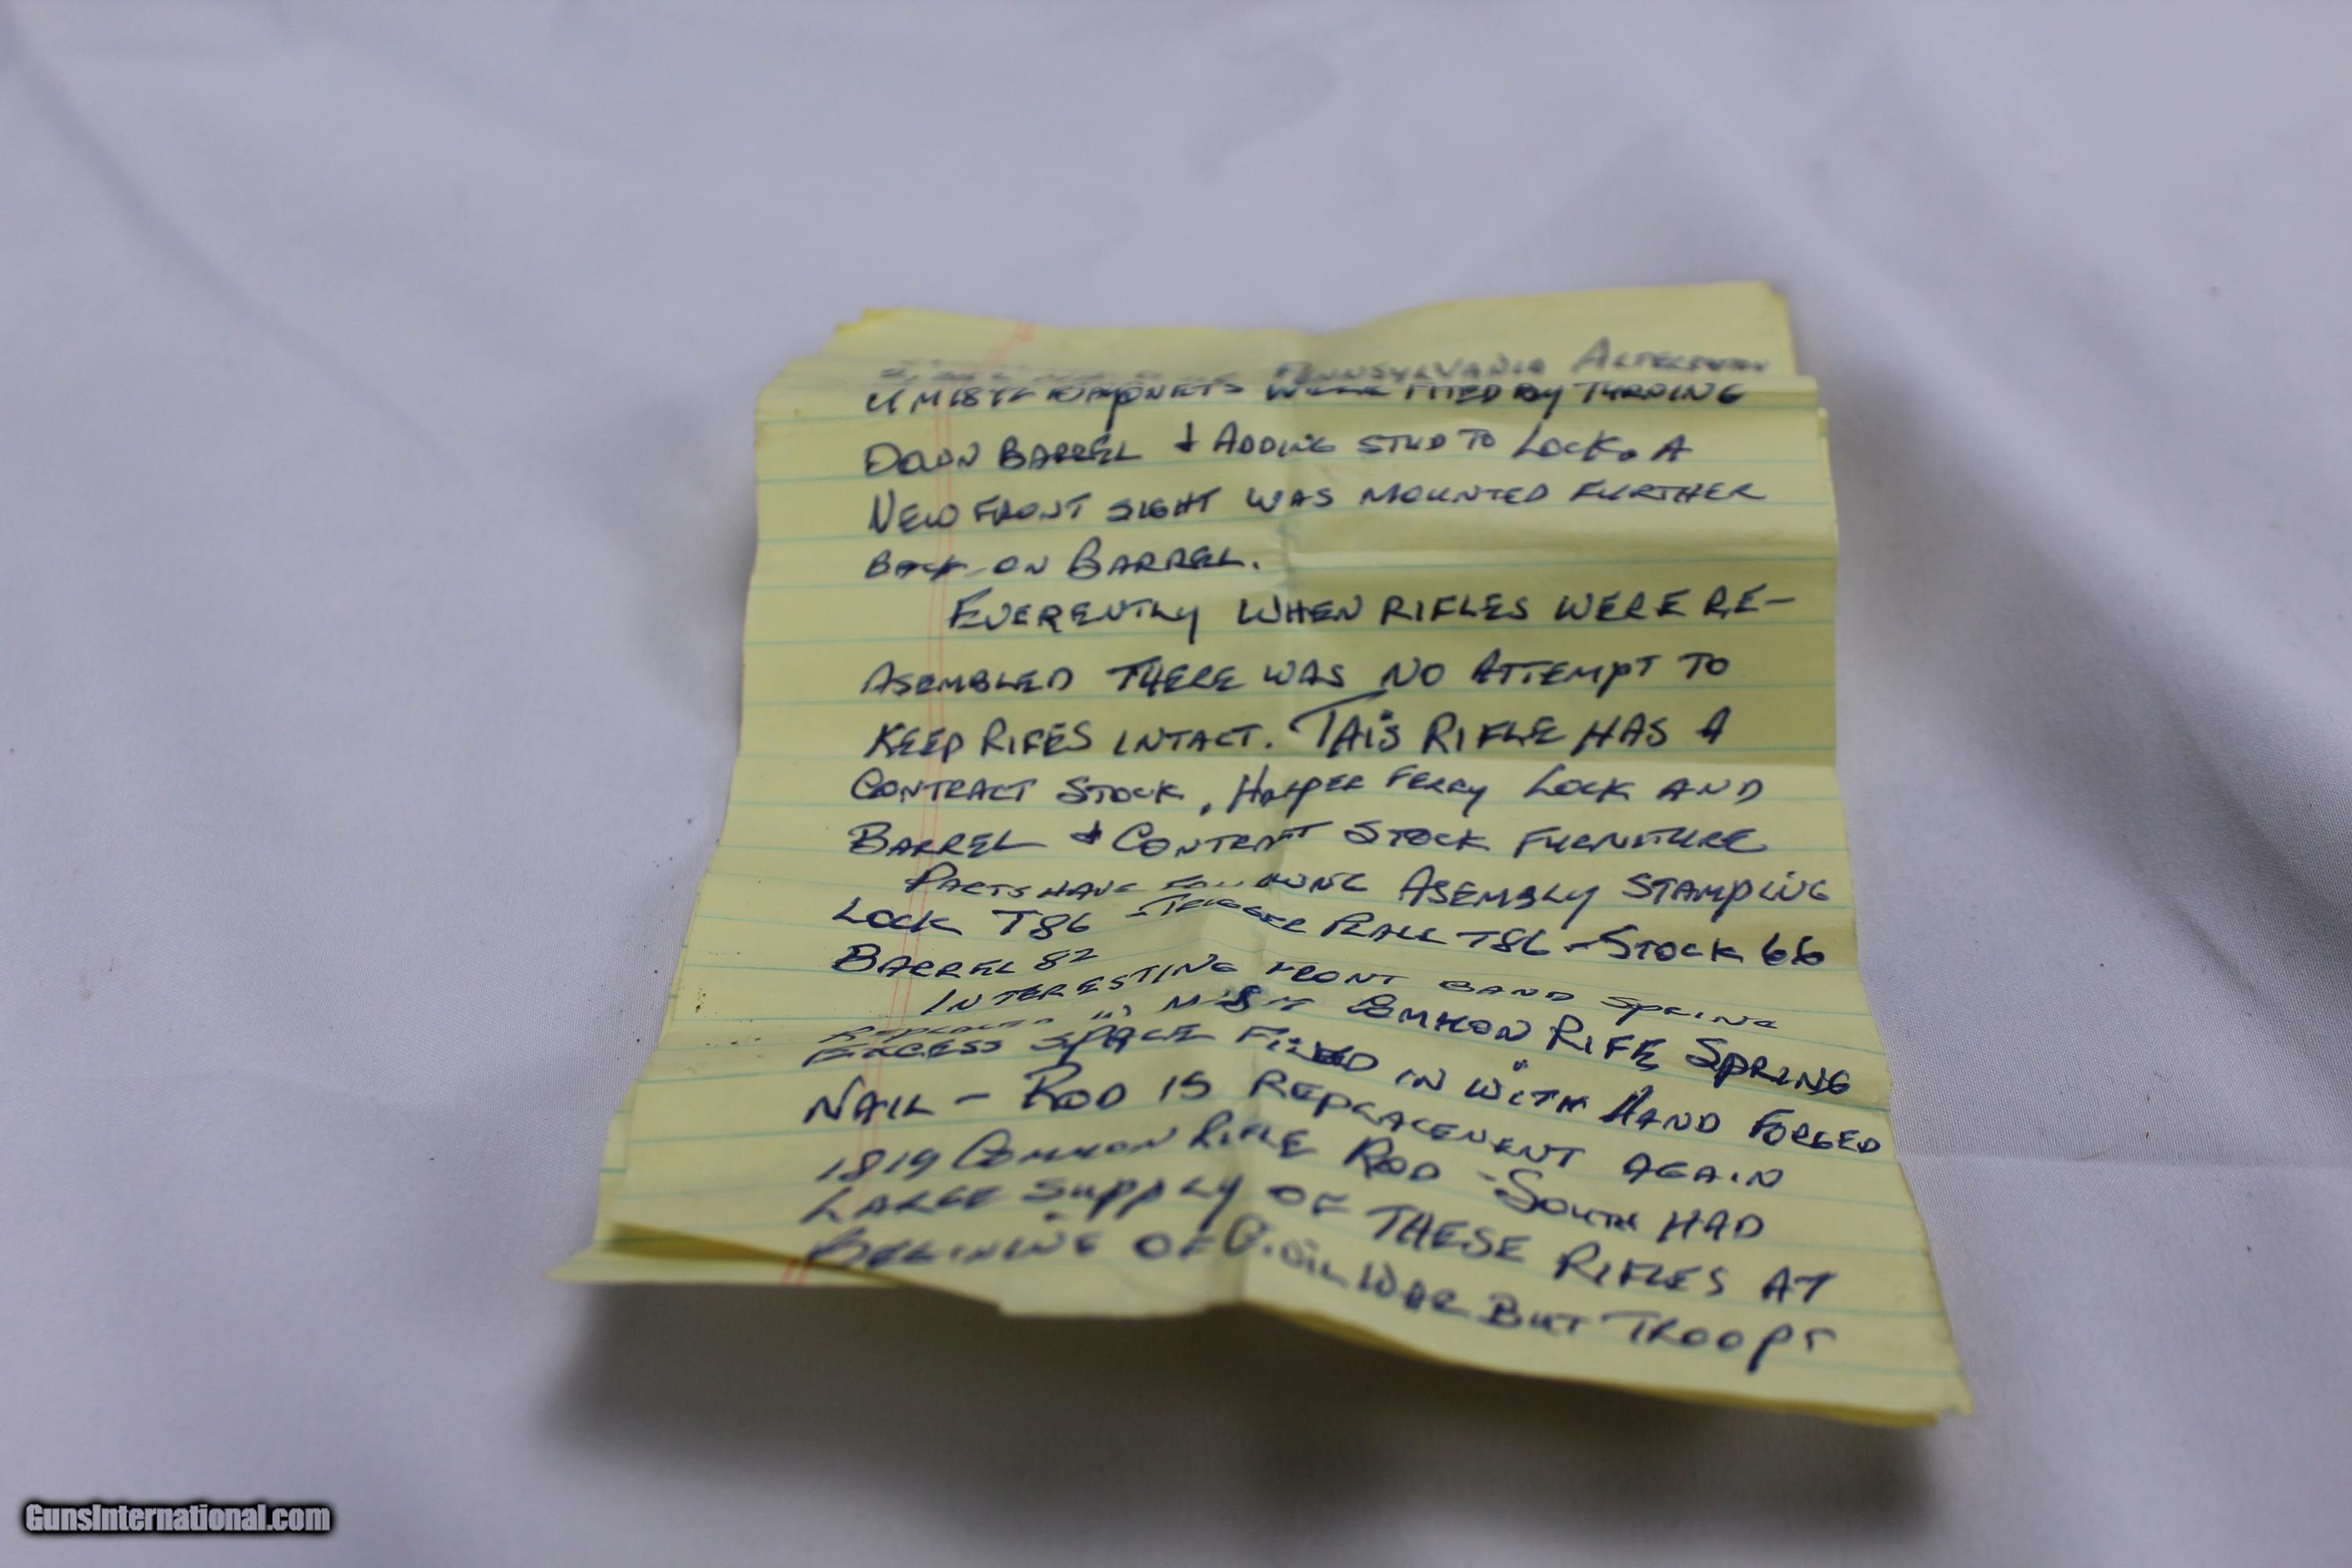 Pennsylvania Alteration
Bayonets were fited by turning
Down Barrel + Adding stud to Lock. A
New front sight was mounted further
back on Barrel.
Everently when rifles were re-
Asembled there was no attempt to
Keep Rifes intact. This Rifle has a
Contract Stock, Harper Ferry Lock and
Barrel + Contract Stock Furniture
Parts have following Asembly Stamping
Lock T86 - Trigger Plate T86 - Stock 66
Barrel 82
Interesting front band spring
Common Rife Spring
Excess space filled in with Hand Forged
Nail - Rod is replacement again
1819 Common Rifle Rod - South had
Large supply of these Rifles at
Begining of Civil War But Troops
GunsInternational.com